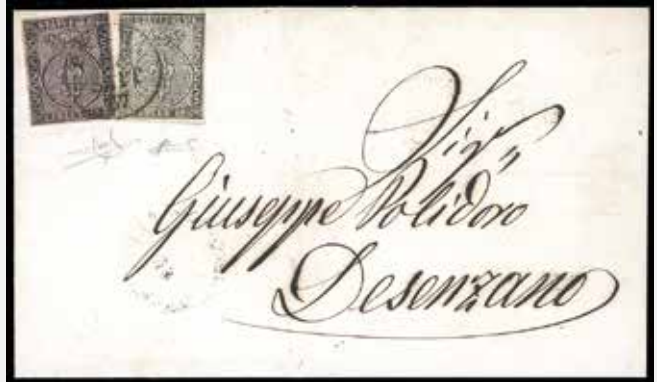 Sig.r
Giuseppe Polidoro
Desenzano